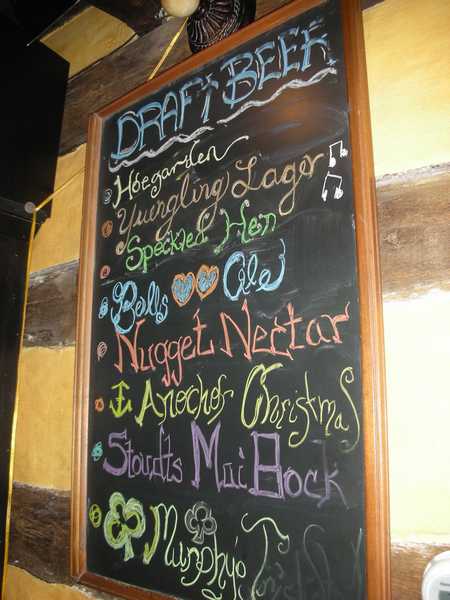 DRAFT BEER
Hoegarden
Yuengling Lager
Speckled Hen
Bells Ale
Nugget Nectar
Anochor Christmas
Stoudts Mai Bock
Murphy's